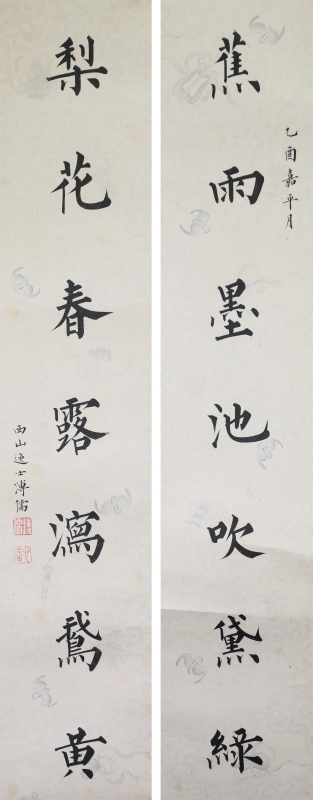 蕉雨墨池吹黛綠
乙酉嘉平月
梨花春露瀉鵞黄
西山逸士溥儒